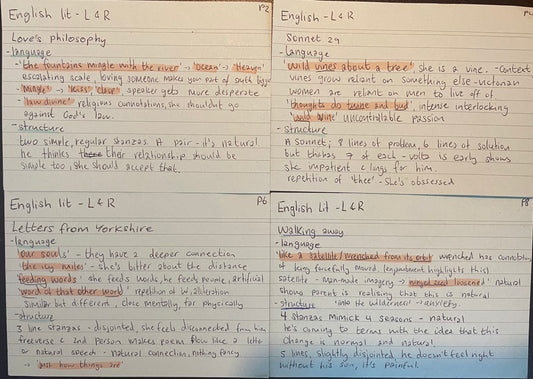 English lit - L & R
P2
Love's philosophy
- language
'the fountains mingle with the river' → 'ocean' → 'Heaven'
escalating scale, loving someone makes you part of smth bigger
'Mingle' → 'kiss' 'clasp' speaker gets more desperate
'law divine' religious connotations, she shouldn't go
against God's law.
- structure
two simple, regular stanzas. A pair - it's natural
he thinks their relationship should be
simple too, she should accept that.
English - L & R
Sonnet 29
- language
'wild vines about a tree' she is a vine. - Context
vines grow reliant on something else - victorian
women are reliant on men to live off of
'thoughts do twine and bud', intense interlocking
'wild vine' uncontrollable passion
- structure
A sonnet; 8 lines of problem, 6 lines of solution
but this has 7 of each - volta is early shows
she impatient & longs for him.
repetition of 'thee' - she's obsessed
English lit - L & R
P6
Letters from Yorkshire
- language
'our souls' - they have a deeper connection
'the icy miles' - she's bitter about the distance
'feeding words' she feeds words, he feeds people, artificial
'word of that other world' repetition of W, alliteration
Similar but different, close mentally, far physically
- structure
3 line stanzas - disjointed, she feels disconnected from him
freeverse & 2nd person makes poem flow like a letter
or natural speech - natural connection, nothing fancy
→ 'just how things are'
English Lit - L & R
P8
Walking away
- language
'like a satellite / wrenched from its orbit' wrenched has connotations
of being forcefully moved. (enjambment highlights this)
satellite - man-made imagery → 'winged seed loosened' natural
shows parent is realising that this is natural
- structure 'into the wilderness' → anxiety.
4 stanzas mimick 4 seasons - natural
he's coming to terms with the idea that this
change is normal and natural.
5 lines, slightly disjointed, he doesn't feel right
without his son, it's painful.